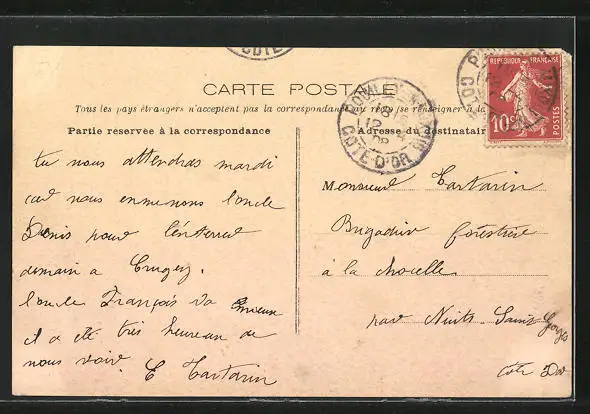 CARTE POSTALE
Tous les pays étrangers n'acceptent pas la correspondance au recto (se renseigner à la
Partie reservée à la correspondance
Adresse du destinataire
REPUBLIQUE FRANÇAISE
10c
POSTES
COTE-D'OR
tu nous attendras mardi
car nous emmenons l'oncle
Denis pour l'enterrer
demain a
l'oncle François va mieux
il a été très heureux de
nous voir. E Tartarin
Monsieur Tartarin
Brigadier forestier
à la
par Nuits Saint Georges
Côte D'or